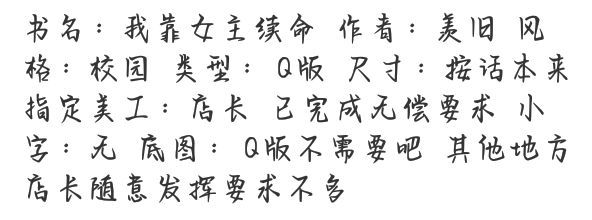 书名：我靠女主续命 作者：羡旧 风
格：校园 类型：Q版 尺寸：按话本来
指定美工：店长 已完成无偿要求 小
字：无 底图：Q版不需要吧 其他地方
店长随意发挥要求不多